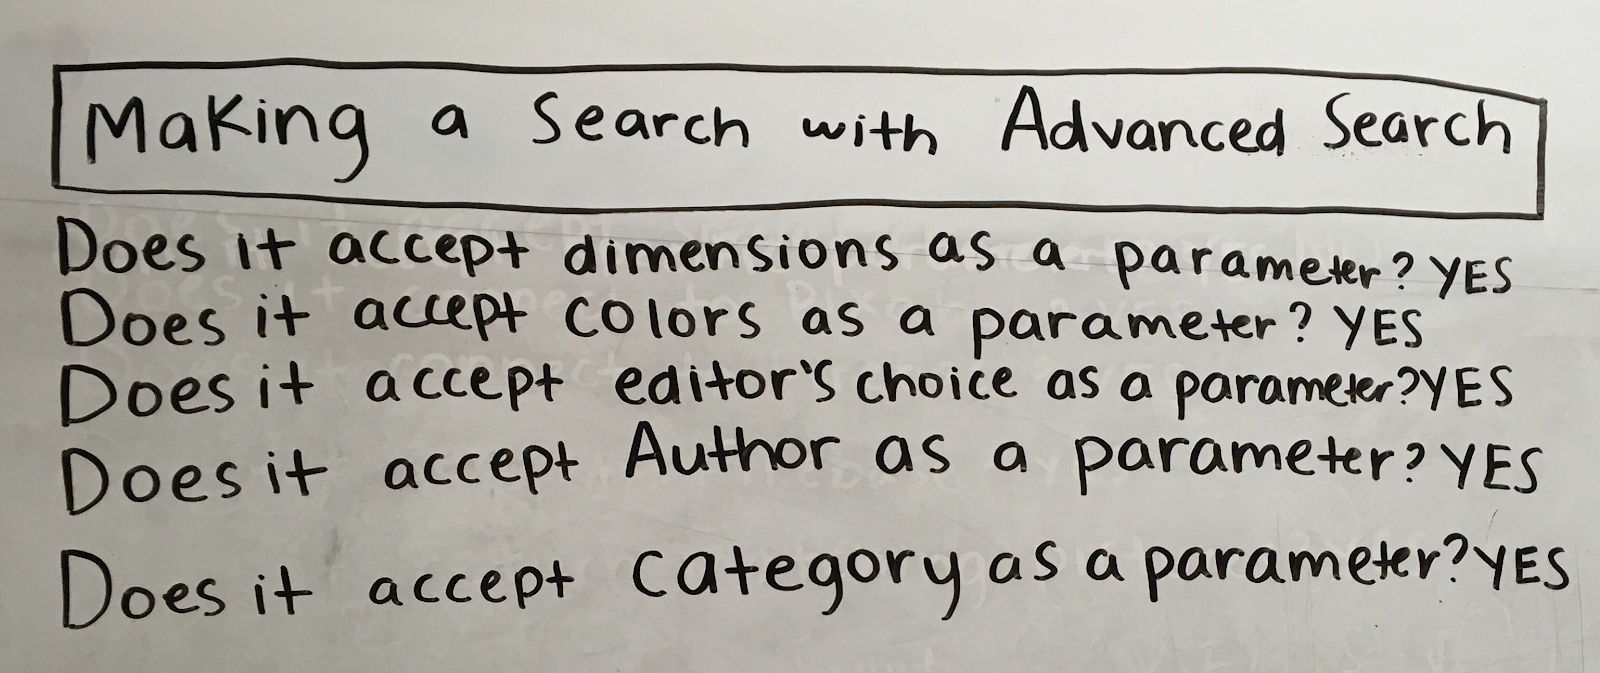 Making a Search with Advanced Search
Does it accept dimensions as a parameter? YES
Does it accept colors as a parameter? YES
Does it accept editor's choice as a parameter? YES
Does it accept Author as a parameter? YES
Does it accept category as a parameter? YES